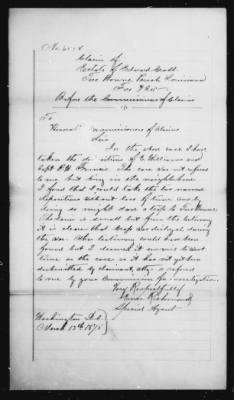 Claim of
Estate of Edward Scott
Terre Bonne Parish Louisiana
Before the Commissioners of Claims
To
Commissioners of Claims
Sirs
In the above case I have
taken the depositions of E. Williams and
Capt The case was not referred
to me but being in the neighborhood
I found that I could take the two named
depositions without loss of time and by
doing so might save a trip to Terre Bonne
The claim is small but from the testimony
it is clear that Scott was disloyal during
the war. Other testimony could have been
found but I deemed it unwise to waste
time on the case as it has not yet been
submitted by claimant, atty. or referred
to me by your Commission for investigation.
Very Respectfully
Special Agent
Washington D.C.
March 12th 1875